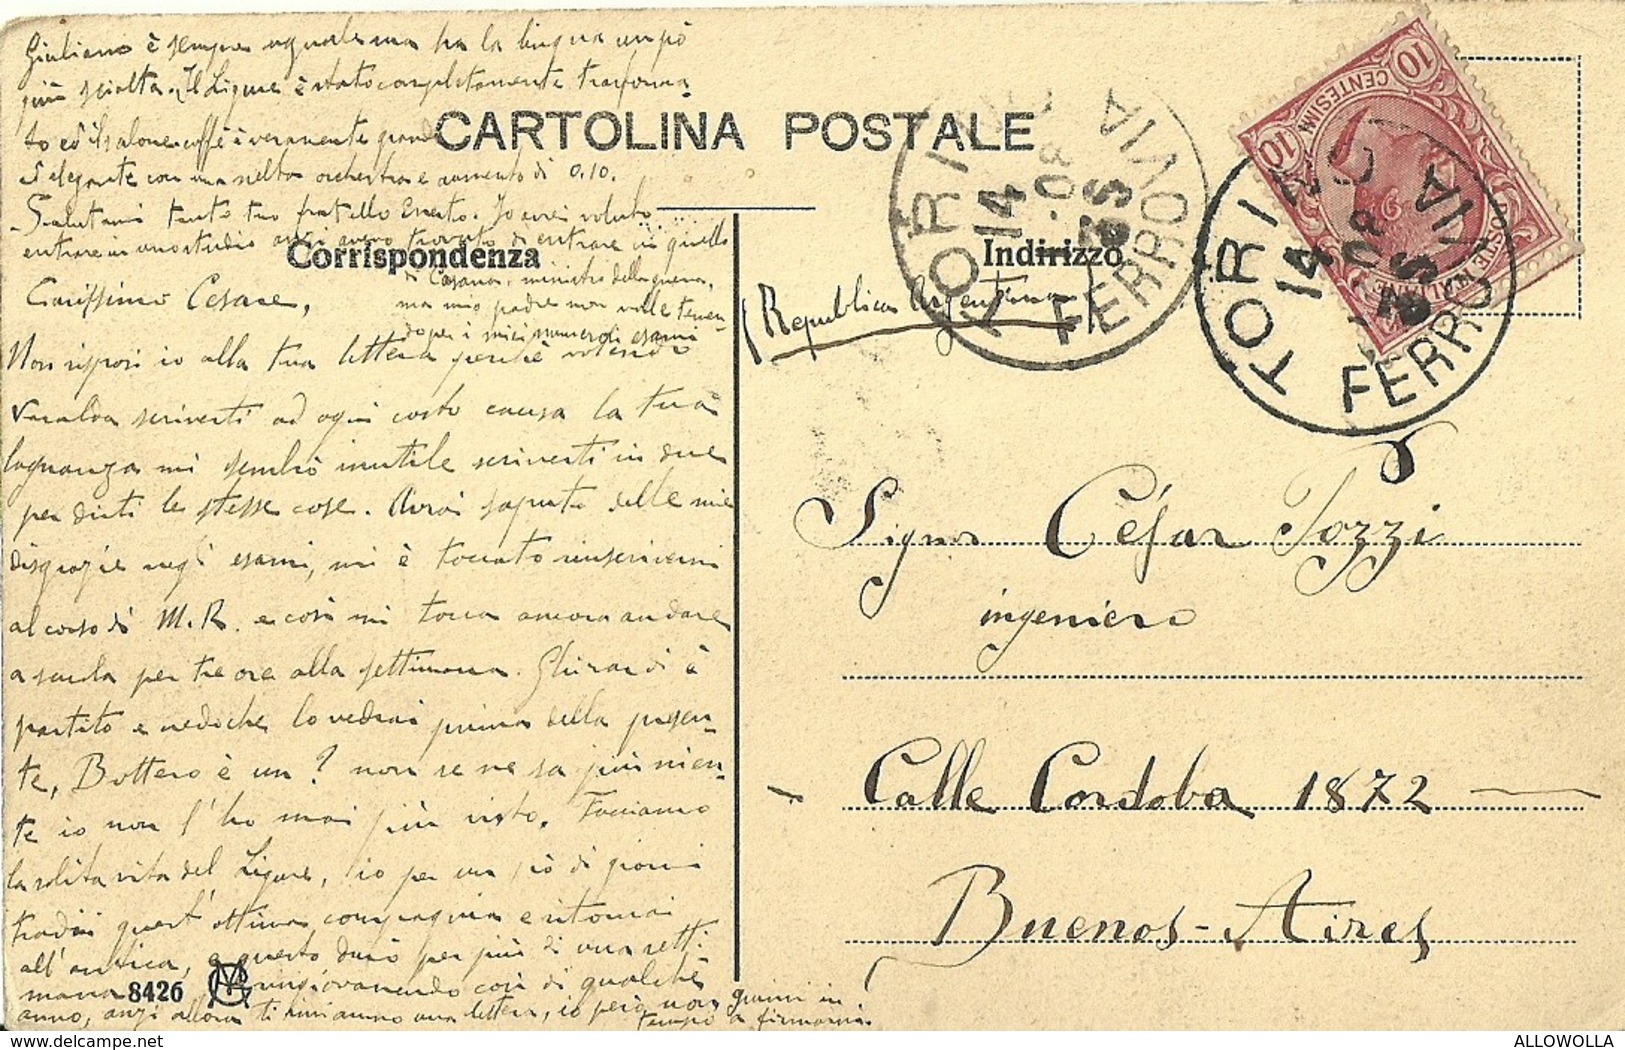 Giuliano è sempre uguale ma ha la lingua un pò
più sciolta. Il Ligure è stato completamente trasforma-
to ed il salone caffè è veramente grande
ed elegante con una scelta orchestra e aumento di 0.10.
Salutami tanto tuo fratello Ernesto. Io avrei voluto
entrare in uno studio anzi avevo trovato di entrare in quello
di Casana, ministro della guerra,
ma mio padre non volle tenen-
do per i miei numerosi esami
CARTOLINA POSTALE
Corrispondenza
Carissimo Cesare,
Non risposi io alla tua lettera perchè volendo
Varalda scriverti ad ogni costo causa la tua
lagnanza mi sembrò inutile scriverti in due
per dirti le stesse cose. Avrai saputo delle mie
disgrazie negli esami, mi è toccato riinscrivermi
al corso di M.R. e così mi tocca ancora andare
a scuola per tre ore alla settimana. Ghirardi è
partito e vedo che lo vedrai prima della presen-
te, Bottero è un ? non se ne sa più nien-
te io non l'ho mai più visto. Facciamo
la solita vita del Ligure, io per un pò di giorni
tradii quest'ottima compagnia e ritornai
all'antica, e questo durò per più di una setti
mana ringiovanendo così di qualche
anno, anzi allora ti inviammo una lettera, io però non giunsi in
tempo a firmarmi.
8426
Indirizzo
(Republica Argentina)
Signor César Tozzi
ingeniero
Calle Cordoba 1872
Buenos-Aires
TORINO
14
08
FERROVIA
TORINO
14
08
FERROVIA
10
CENTESIMI
10
POSTE ITALIANE
ALLOWOLLA